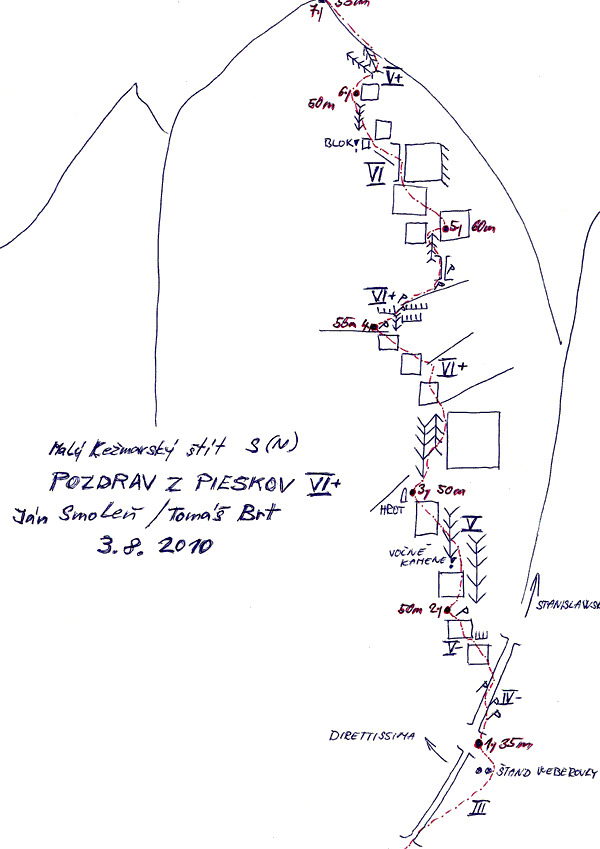 7) 55m
V+
6) 50m
BLOK!
VI
5) 60m
VI+
55m 4)
VI+
Malý Kežmarský štít S(N)
POZDRAV Z PIESKOV VI+
Ján Smoleň / Tomáš Brt
3.8. 2010
3) 50m
HROT
V
VOĽNÉ
KAMENE!
50m 2)
STANISLAWSK
V-
IV-
DIRETTISSIMA
1) 35m
ŠTAND WEBEROVKY
III